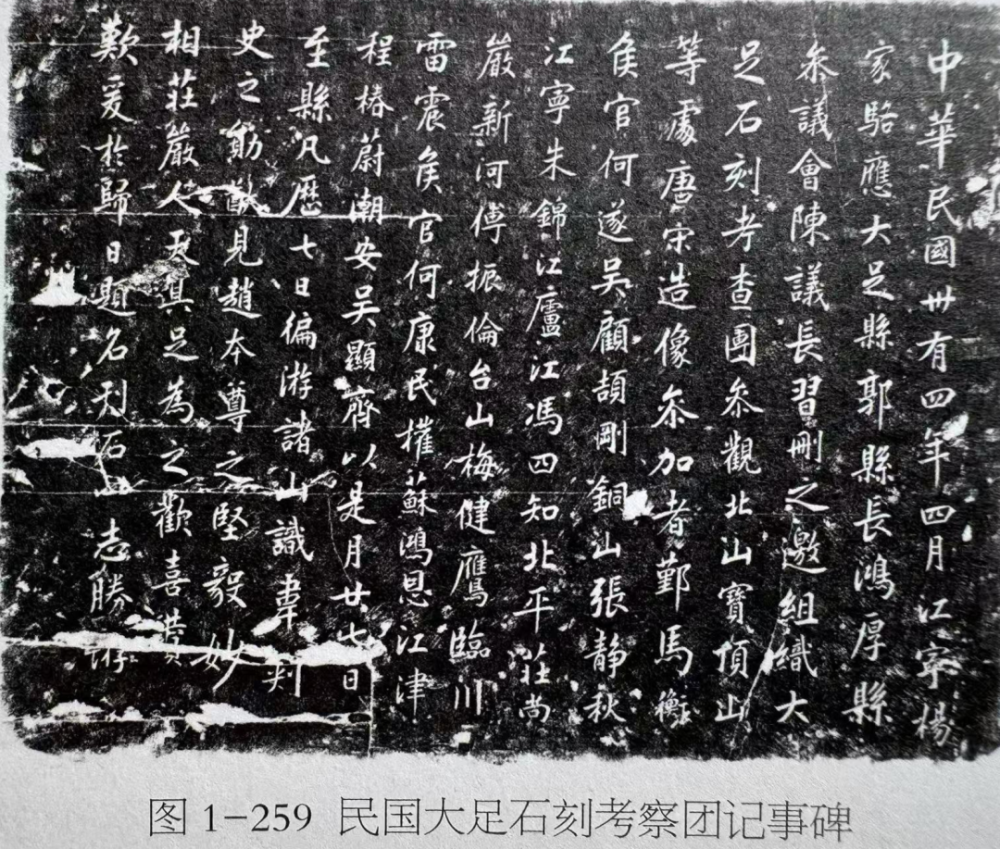 中華民國卅有四年四月江寧楊
家駱應大足縣郭縣長鴻厚縣
叅議會陳議長習刪之邀組織大
足石刻考查團叅觀北山寶頂山
等處唐宋造像叅加者鄞馬衡
侯官何遂吳顧頡剛銅山張靜秋
江寧朱錦江廬江馮四知北平莊尚
嚴新河傅振倫台山梅健鷹臨川
雷震侯官何康民權蘇鴻恩江津
程椿蔚潮安吳顯齊以是月廿七日
至縣凡歷七日徧游諸山識韋判
史之勛猷見趙本尊之堅毅妙
相莊嚴人天具足為之歡喜贊
歎爰於歸日題名刊石以志勝游
图 1-259 民国大足石刻考察团记事碑